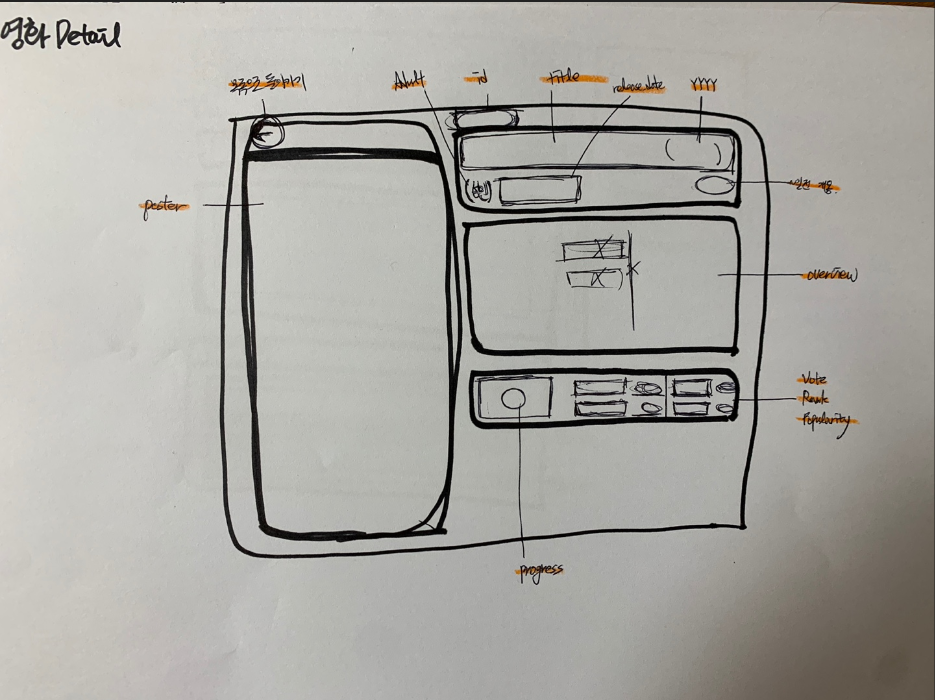 영화 Detail
Adult
id
title
release date
YYYY
poster
overview
Vote
Rank
Popularity
progress